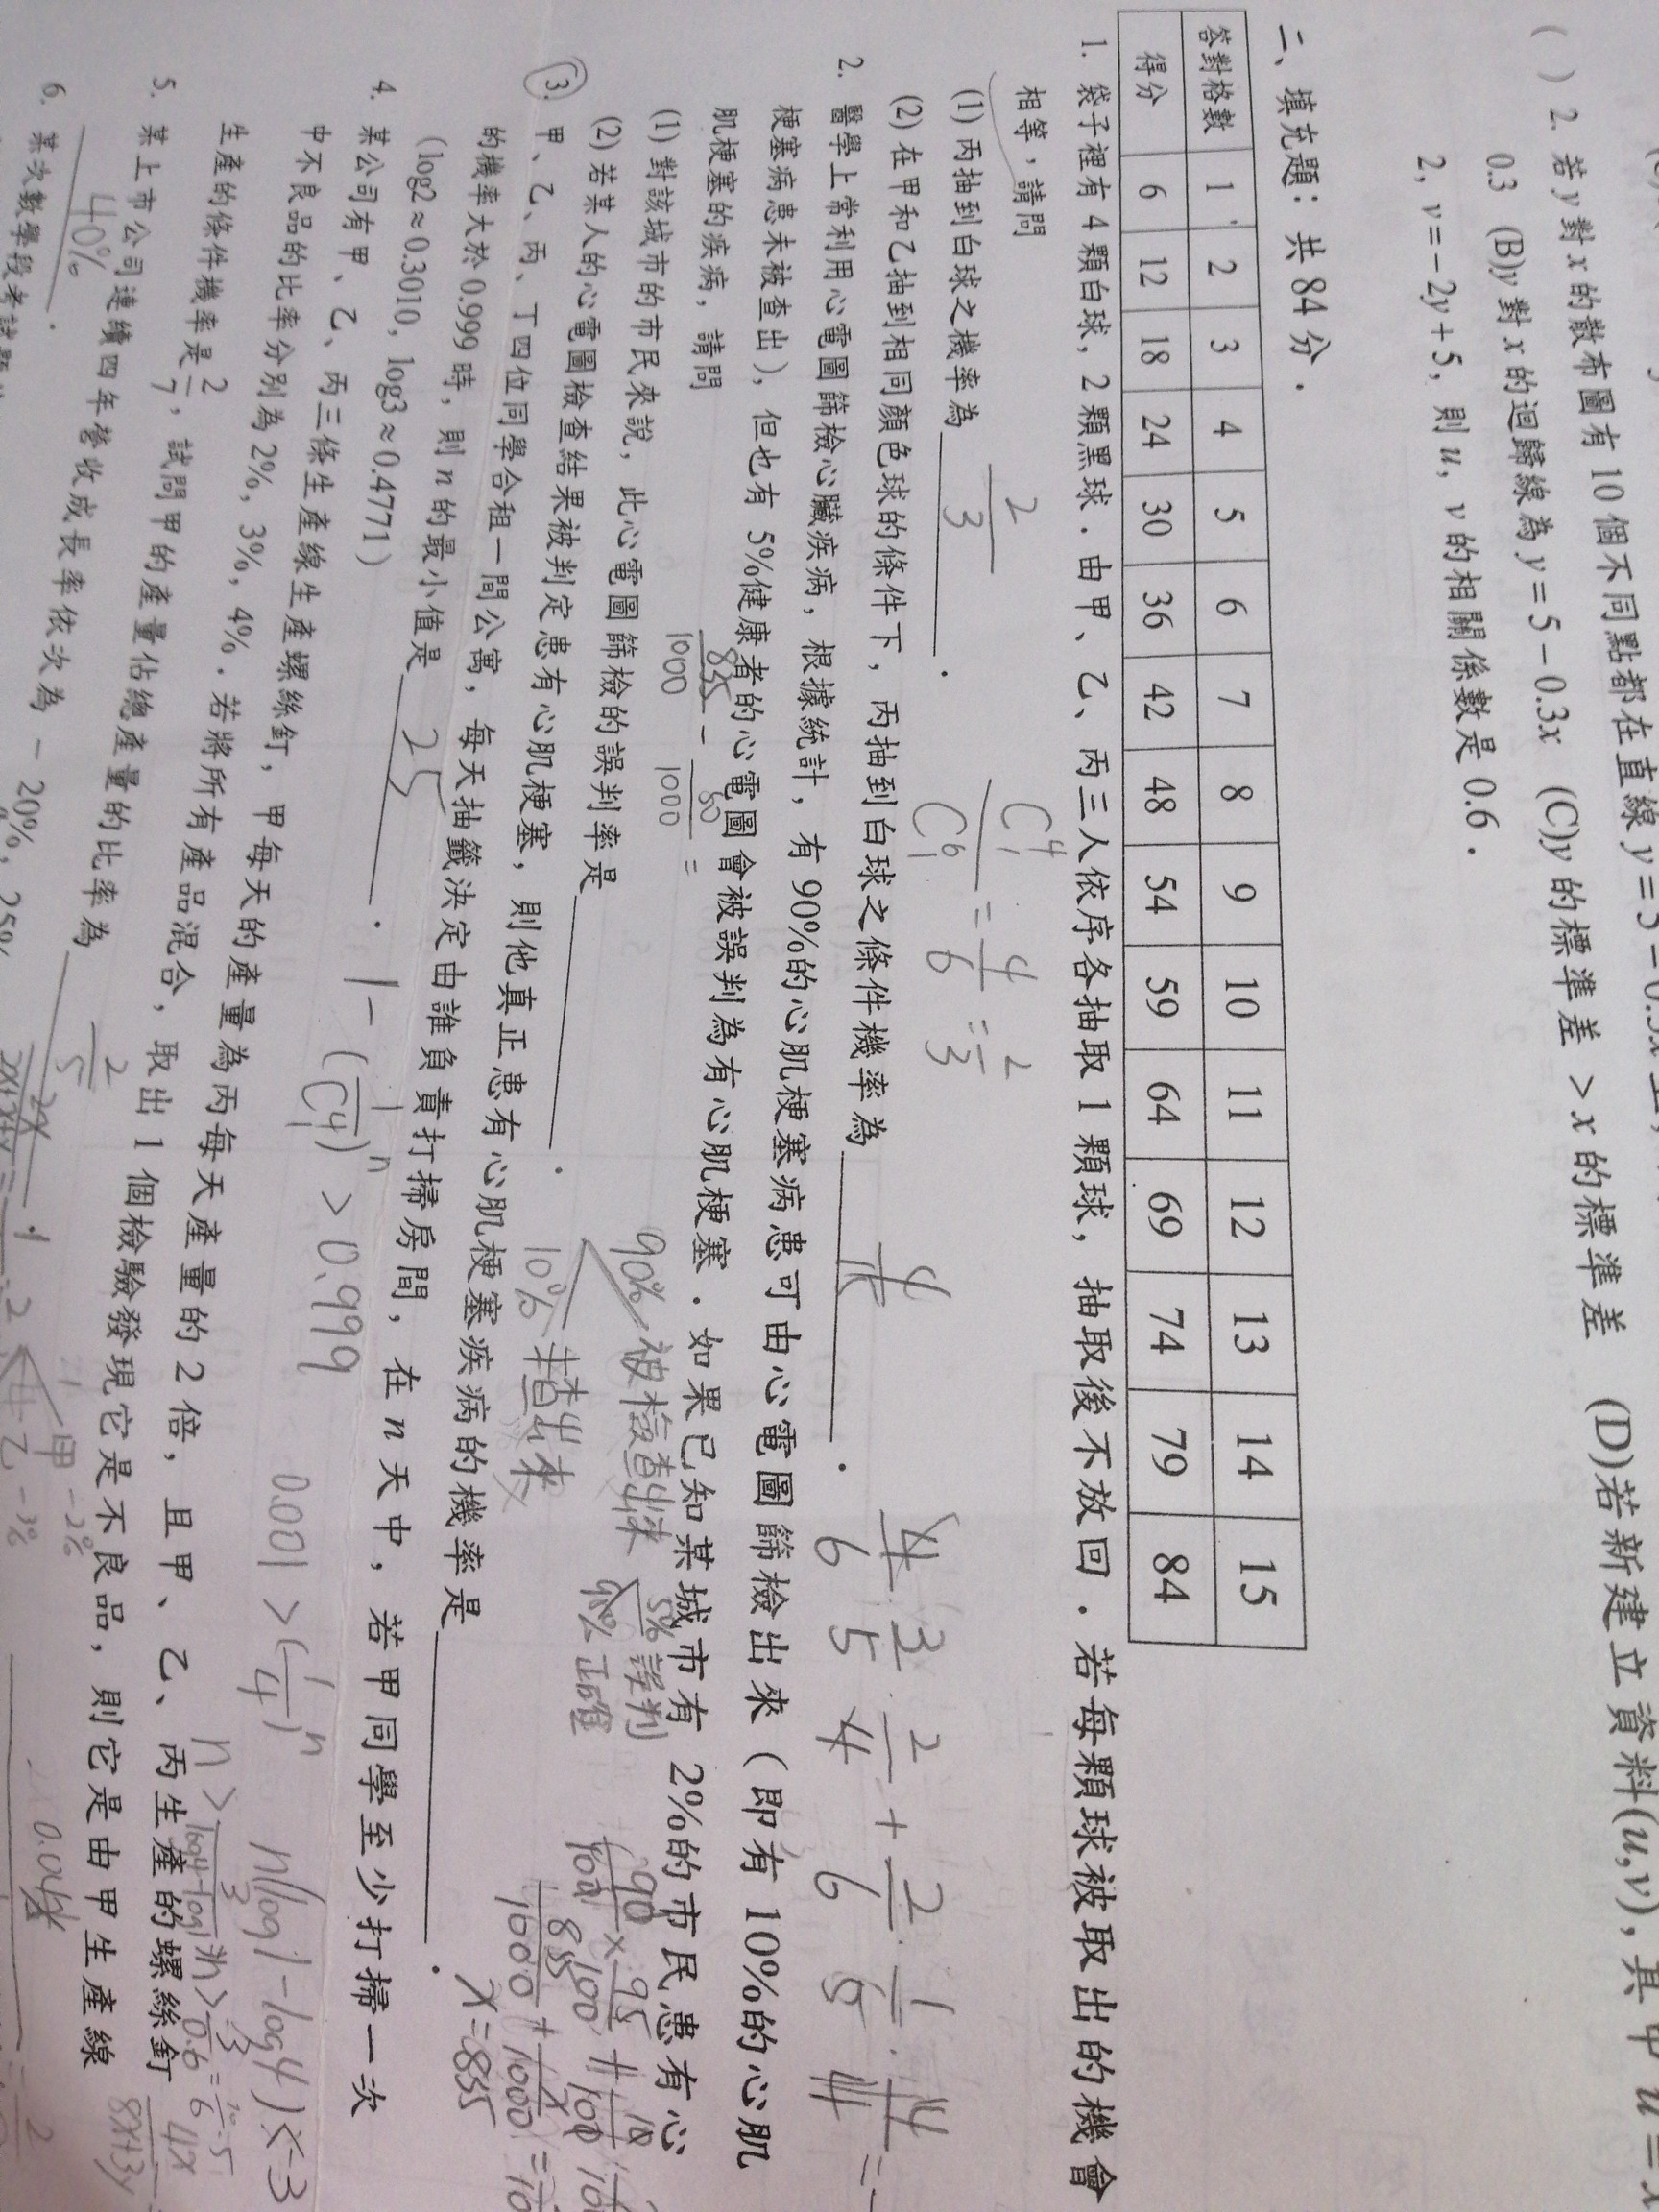 ( ) 2. 若 y 對 x 的散布圖有 10 個不同點都在直線 y = 5 − 0.3x 上,
0.3 (B)y 對 x 的迴歸線為 y = 5 − 0.3x (C)y 的標準差 > x 的標準差 (D)若新建立資料(u,v),其中 u = x
2, v = −2y + 5, 則 u, v 的相關係數是 0.6.
二、填充題:共 84 分.
答對格數 1 2 3 4 5 6 7 8 9 10 11 12 13 14 15
得分 6 12 18 24 30 36 42 48 54 59 64 69 74 79 84
1. 袋子裡有 4 顆白球, 2 顆黑球.由甲、乙、丙三人依序各抽取 1 顆球, 抽取後不放回.若每顆球被取出的機會
相等,請問
(1) 丙抽到白球之機率為 2/3 .
C4 1 / C6 1 = 4/6 = 2/3
(2) 在甲和乙抽到相同顏色球的條件下, 丙抽到白球之條件機率為 .
4/6 · 3/5 · 2/4 + 2/6 · 1/5 · 4/4 =
2. 醫學上常利用心電圖篩檢心臟疾病, 根據統計, 有 90%的心肌梗塞病患可由心電圖篩檢出來(即有 10%的心肌
梗塞病患未被查出), 但也有 5%健康者的心電圖會被誤判為有心肌梗塞.如果已知某城市有 2%的市民患有心
肌梗塞的疾病, 請問
(1) 對該城市的市民來說, 此心電圖篩檢的誤判率是 .
855/1000 − 50/1000 =
90% 被檢查出來
10%
5% 誤判
正確
(2) 若某人的心電圖檢查結果被判定患有心肌梗塞, 則他真正患有心肌梗塞疾病的機率是 .
x=855
3. 甲、乙、丙、丁四位同學合租一間公寓, 每天抽籤決定由誰負責打掃房間, 在 n 天中, 若甲同學至少打掃一次
的機率大於 0.999 時, 則 n 的最小值是 25 .
(log2≈0.3010, log3≈0.4771)
1 − (1/C4 1)^n > 0.999
0.001 > (1/4)^n
n(log1 − log4) < −3
4. 某公司有甲、乙、丙三條生產線生產螺絲釘, 甲每天的產量為丙每天產量的 2 倍, 且甲、乙、丙生產的螺絲釘
中不良品的比率分別為 2%, 3%, 4%.若將所有產品混合, 取出 1 個檢驗發現它是不良品, 則它是由甲生產線
生產的條件機率是 2/7, 試問甲的產量佔總產量的比率為 2/5 .
甲 −2%
乙 −3%
4x / 8x+3y
5. 某上市公司連續四年營收成長率依次為 −20%, 25%
40% .
6. 某次數學段考試題